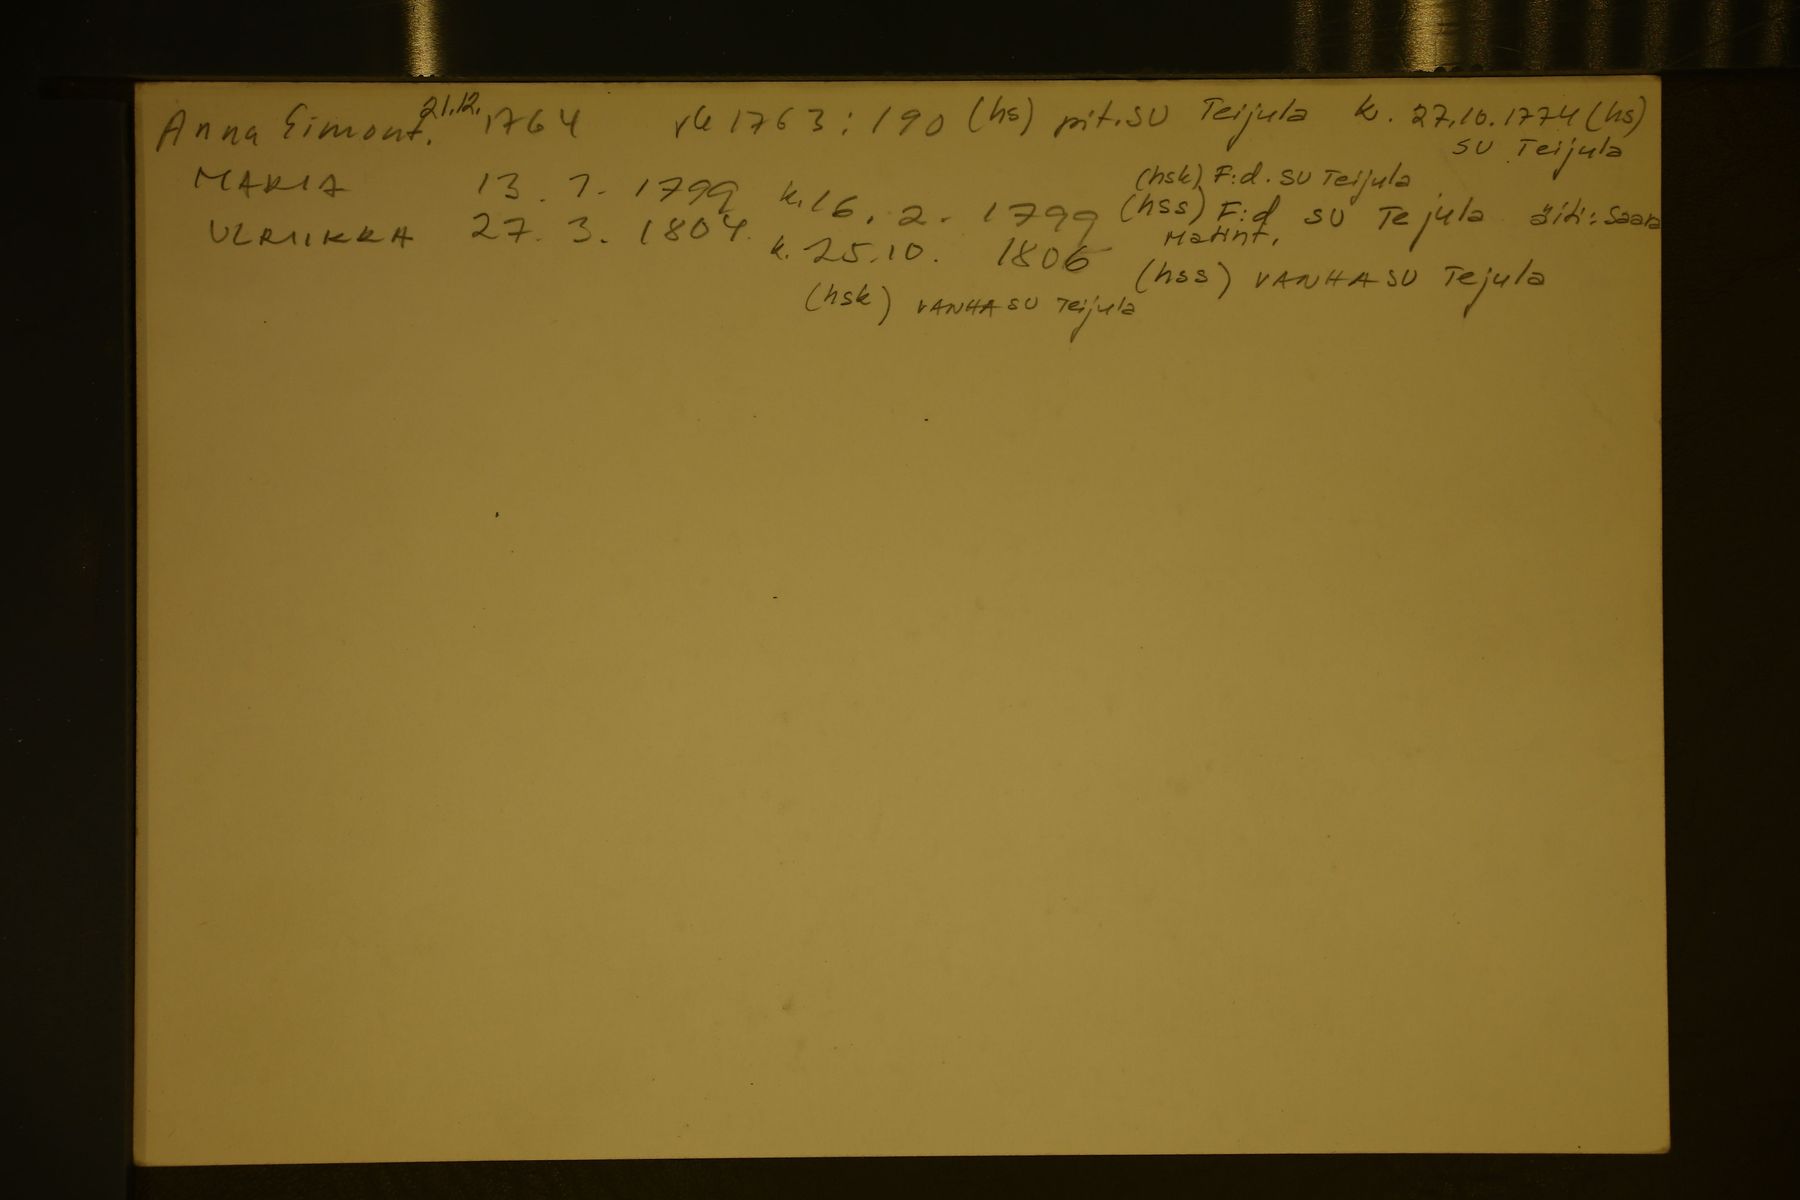 Anna Simont. 21.12. 1764 rk 1763:190 (hs) pit.SU Teijula k. 27.10.1774 (hs)
SU Teijula
MARIA 13. 1. 1799 k. 16. 2. 1799 (hsk) F:d. SU Teijula
(hss) F:d SU Tejula äiti: Saara
Matint.
ULRIIKKA 27. 3. 1804 k. 25.10. 1806 (hss) VANHA SU Tejula
(hsk) VANHA SU Teijula